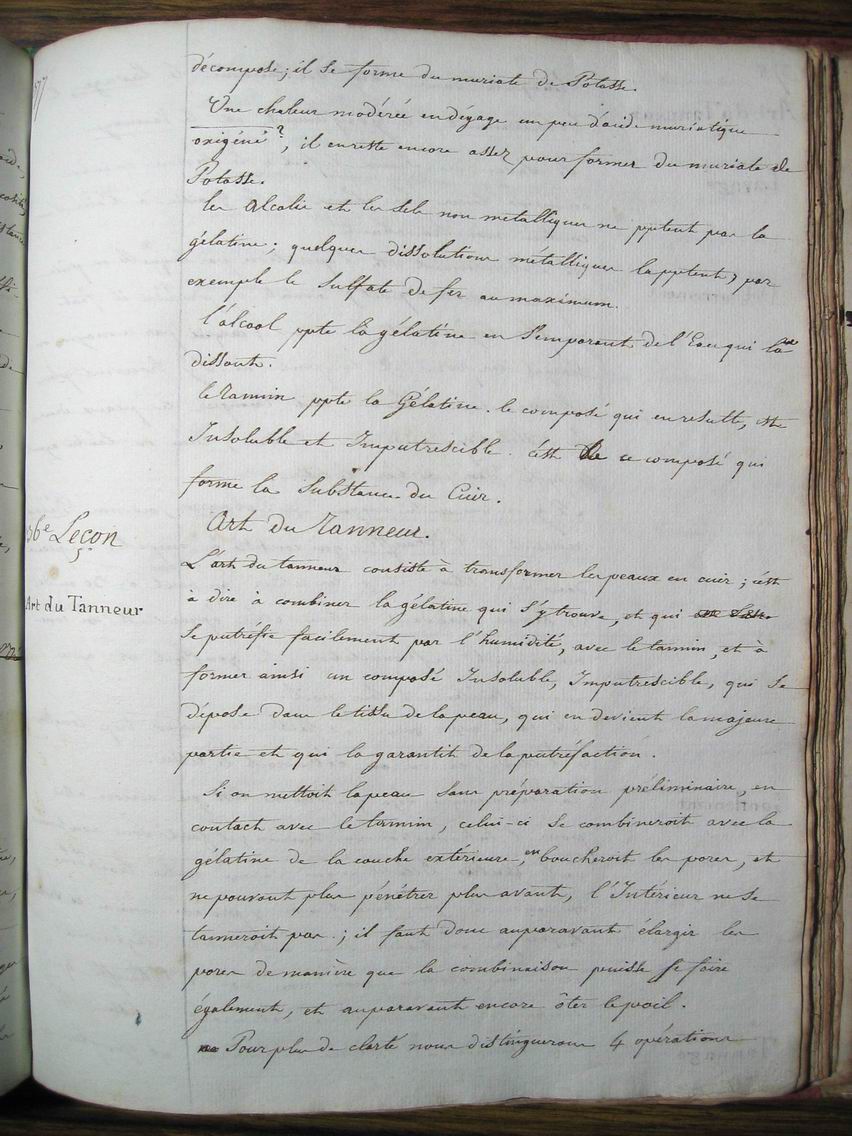 décompose; il se forme du muriate de Potasse.
Une chaleur modérée en dégage un peu d'acide muriatique
oxigéné ?, il en reste encore assez pour former du muriate de
Potasse.
les Alcalis et les sels non metalliques ne pptent pas la
gélatine; quelques dissolutions métalliques la pptent, par
exemple le sulfate de fer au maximum.
l'alcool ppte la gélatine en s'emparant de l'Eau qui la
dissout.
le Tannin ppte la Gélatine. le composé qui en resulte, est
Insoluble et Imputrescible. c'est ce composé qui
forme la substance du Cuir.
Art du Tanneur.
36e Leçon
L'art du tanneur consiste à transformer les peaux en cuir; c'est
Art du Tanneur
à dire à combiner la gélatine qui s'y trouve, et qui
se putréfie facilement par l'humidité, avec le tannin, et à
former ainsi un composé Insoluble, Imputrescible, qui se
dépose dans le tissu de la peau, qui en devient la majeure
partie et qui la garantit de la putréfaction.
Si on mettoit la peau sans préparation préliminaire, en
contact avec le tannin, celui-ci se combineroit avec la
gélatine de la couche extérieure, en boucheroit les pores, et
ne pouvant plus pénétrer plus avant, l'Intérieur ne se
tanneroit pas; il faut donc auparavant élargir les
pores de manière que la combinaison puisse se faire
également, et auparavant encore ôter le poil.
Pour plus de clarté nous distinguerons 4 opérations